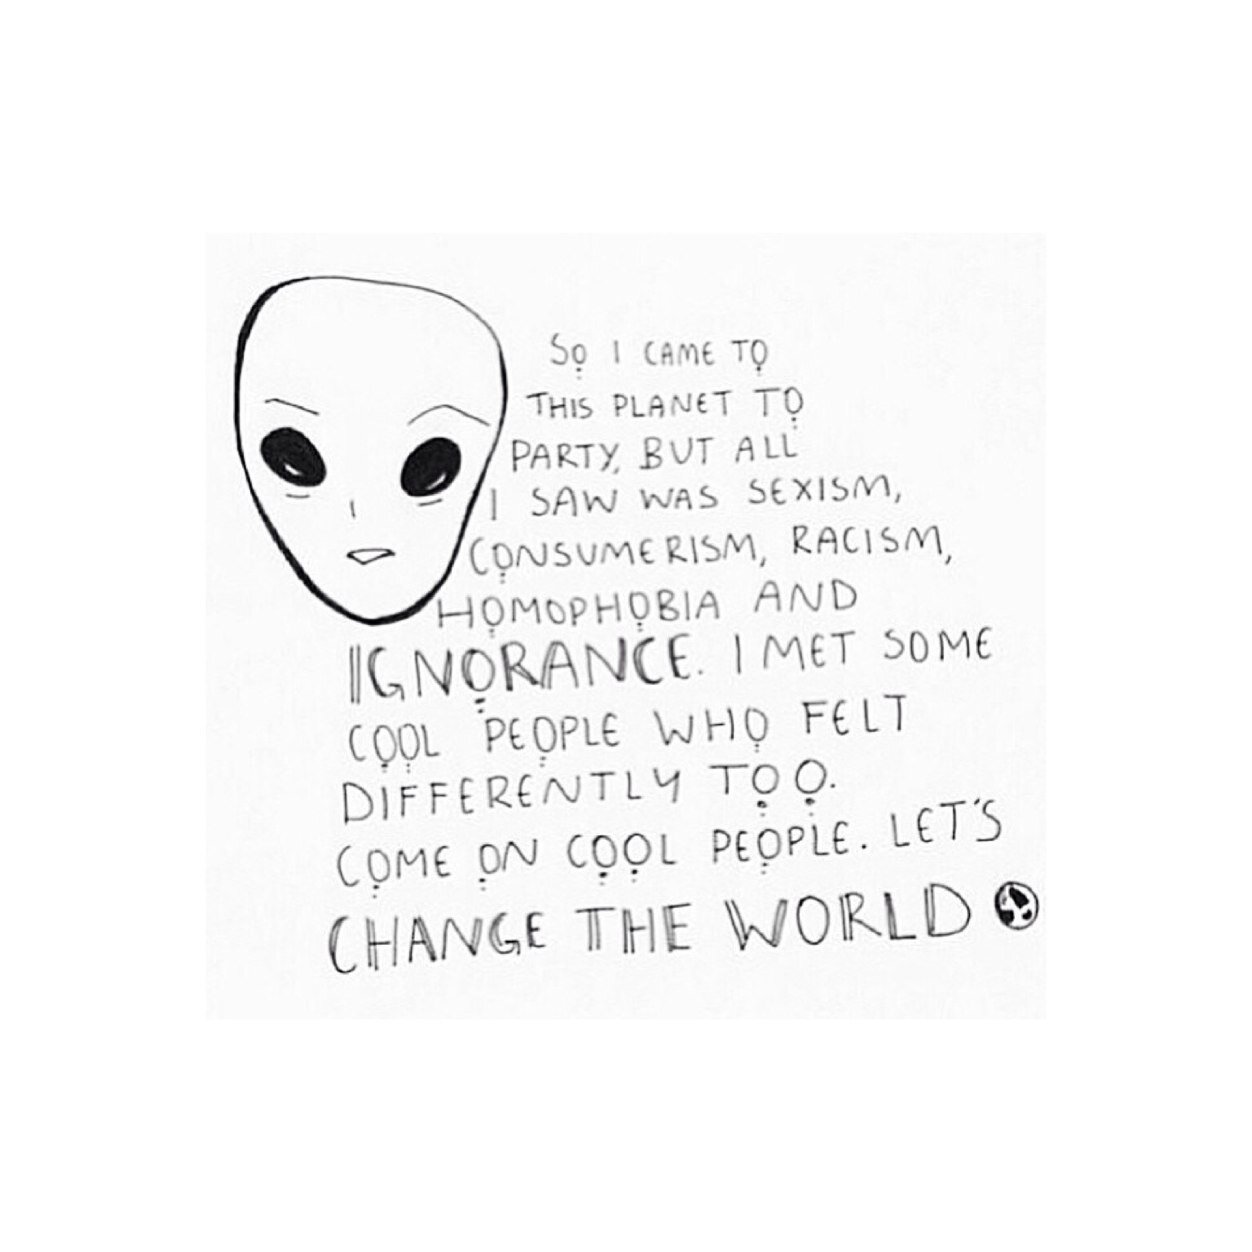 SO I CAME TO
THIS PLANET TO
PARTY, BUT ALL
I SAW WAS SEXISM,
CONSUMERISM, RACISM,
HOMOPHOBIA AND
IGNORANCE. I MET SOME
COOL PEOPLE WHO FELT
DIFFERENTLY TOO.
COME ON COOL PEOPLE. LET'S
CHANGE THE WORLD